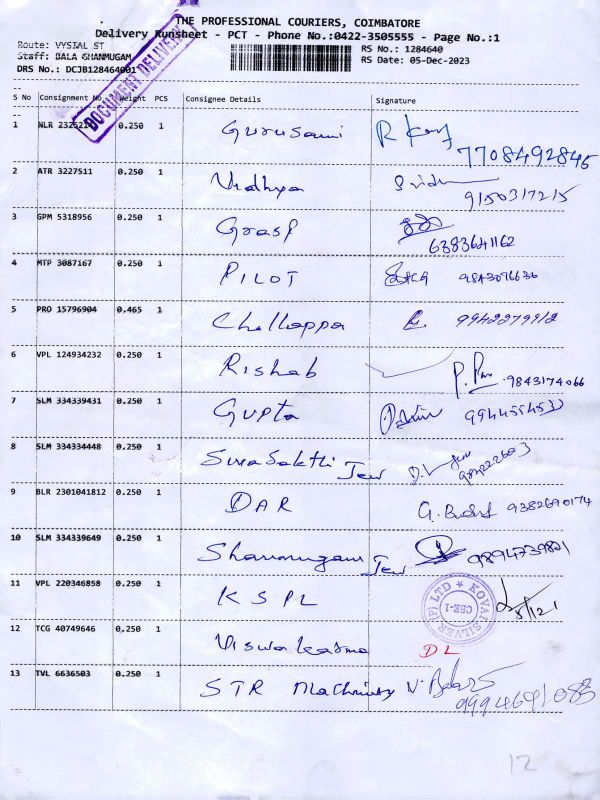 THE PROFESSIONAL COURIERS, COIMBATORE
Delivery Runsheet - PCT - Phone No.:0422-3505555 - Page No.:1
Route: VYSIAL ST
Staff: BALA SHANMUGAM
DRS No.: DCJB128464001
RS No.: 1284640
RS Date: 05-Dec-2023
DOCUMENT DELIVERY
S No Consignment No Weight PCS Consignee Details Signature
1 NLR 0.250 1 Gurusami 7708492845
2 ATR 3227511 0.250 1 Vidhya 9150317215
3 GPM 5318956 0.250 1 Grasp 6383641162
4 MTP 3087167 0.250 1 PILOT 9843096636
5 PRO 15796904 0.465 1 Chellappa 9942279912
6 VPL 124934232 0.250 1 Rishab 9843174066
7 SLM 334339431 0.250 1 Gupta
8 SLM 334334448 0.250 1 Siva Sakthi Jew
9 BLR 2301041812 0.250 1 DAR 9382690174
10 SLM 334339649 0.250 1 Shanmugam Jew 9894739821
11 VPL 220346858 0.250 1 KSPL 5/12/
KOVAI SILVER (P) LTD ★
CBE-1
12 TCG 40749646 0.250 1 Viswakarma DL
13 TVL 6636503 0.250 1 STR Machinery 9994691083
12